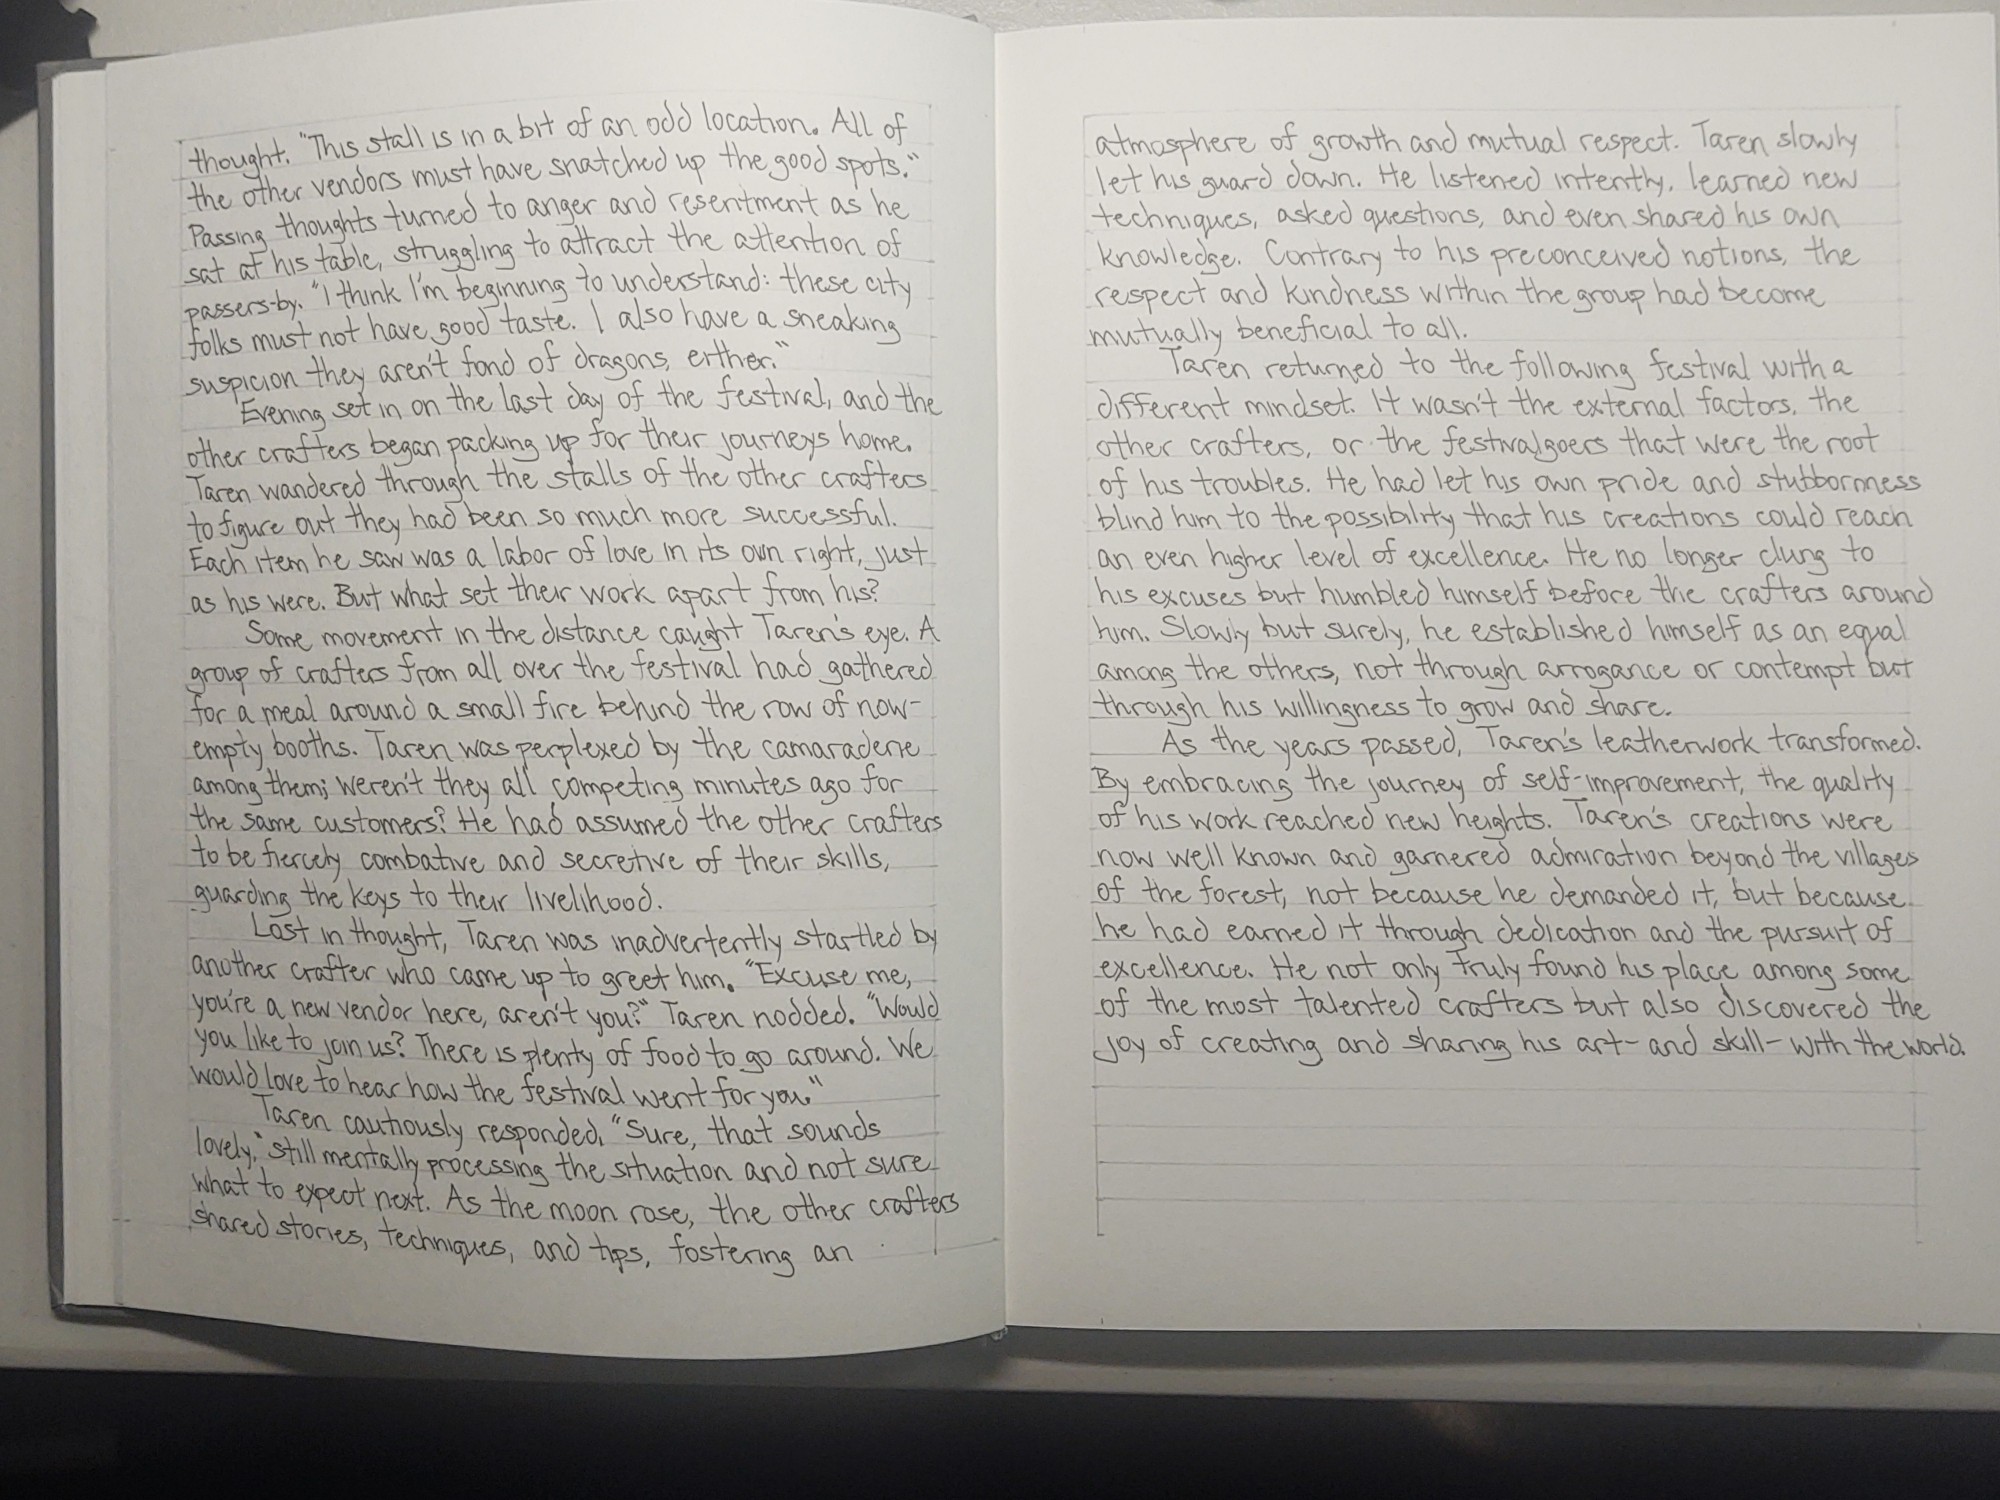 thought. "This stall is in a bit of an odd location. All of
the other vendors must have snatched up the good spots."
Passing thoughts turned to anger and resentment as he
sat at his table, struggling to attract the attention of
passers-by. "I think I'm beginning to understand: these city
folks must not have good taste. I also have a sneaking
suspicion they aren't fond of dragons, either."
Evening set in on the last day of the festival, and the
other crafters began packing up for their journeys home.
Taren wandered through the stalls of the other crafters
to figure out they had been so much more successful.
Each item he saw was a labor of love in its own right, just
as his were. But what set their work apart from his?
Some movement in the distance caught Taren's eye. A
group of crafters from all over the festival had gathered
for a meal around a small fire behind the row of now-
empty booths. Taren was perplexed by the camaraderie
among them; weren't they all competing minutes ago for
the same customers? He had assumed the other crafters
to be fiercely combative and secretive of their skills,
guarding the keys to their livelihood.
Lost in thought, Taren was inadvertently startled by
another crafter who came up to greet him. "Excuse me,
you're a new vendor here, aren't you?" Taren nodded. "Would
you like to join us? There is plenty of food to go around. We
would love to hear how the festival went for you."
Taren cautiously responded, "Sure, that sounds
lovely," still mentally processing the situation and not sure
what to expect next. As the moon rose, the other crafters
shared stories, techniques, and tips, fostering an
atmosphere of growth and mutual respect. Taren slowly
let his guard down. He listened intently, learned new
techniques, asked questions, and even shared his own
knowledge. Contrary to his preconceived notions, the
respect and kindness within the group had become
mutually beneficial to all.
Taren returned to the following festival with a
different mindset. It wasn't the external factors, the
other crafters, or the festivalgoers that were the root
of his troubles. He had let his own pride and stubbornness
blind him to the possibility that his creations could reach
an even higher level of excellence. He no longer clung to
his excuses but humbled himself before the crafters around
him. Slowly but surely, he established himself as an equal
among the others, not through arrogance or contempt but
through his willingness to grow and share.
As the years passed, Taren's leatherwork transformed.
By embracing the journey of self-improvement, the quality
of his work reached new heights. Taren's creations were
now well known and garnered admiration beyond the villages
of the forest, not because he demanded it, but because
he had earned it through dedication and the pursuit of
excellence. He not only truly found his place among some
of the most talented crafters but also discovered the
joy of creating and sharing his art- and skill- with the world.